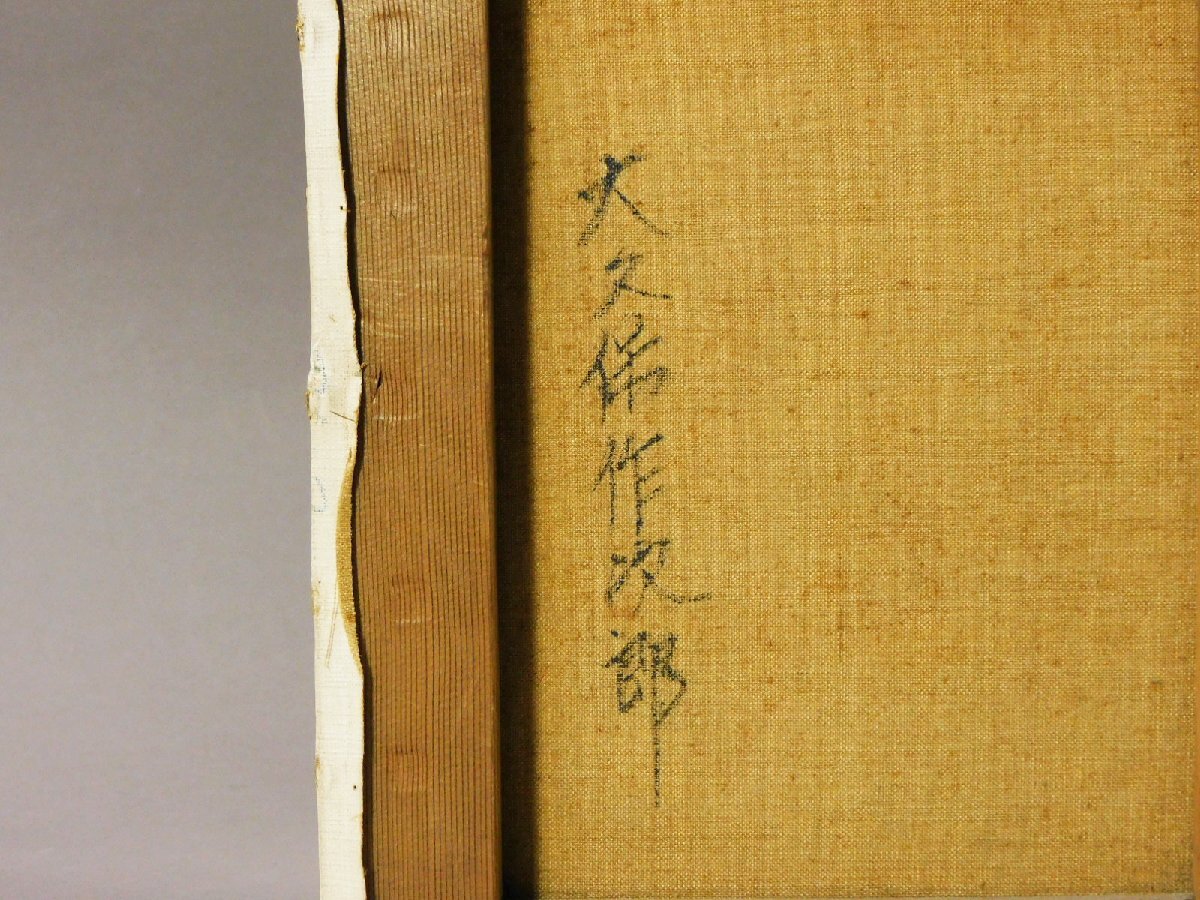 大久保作次郎